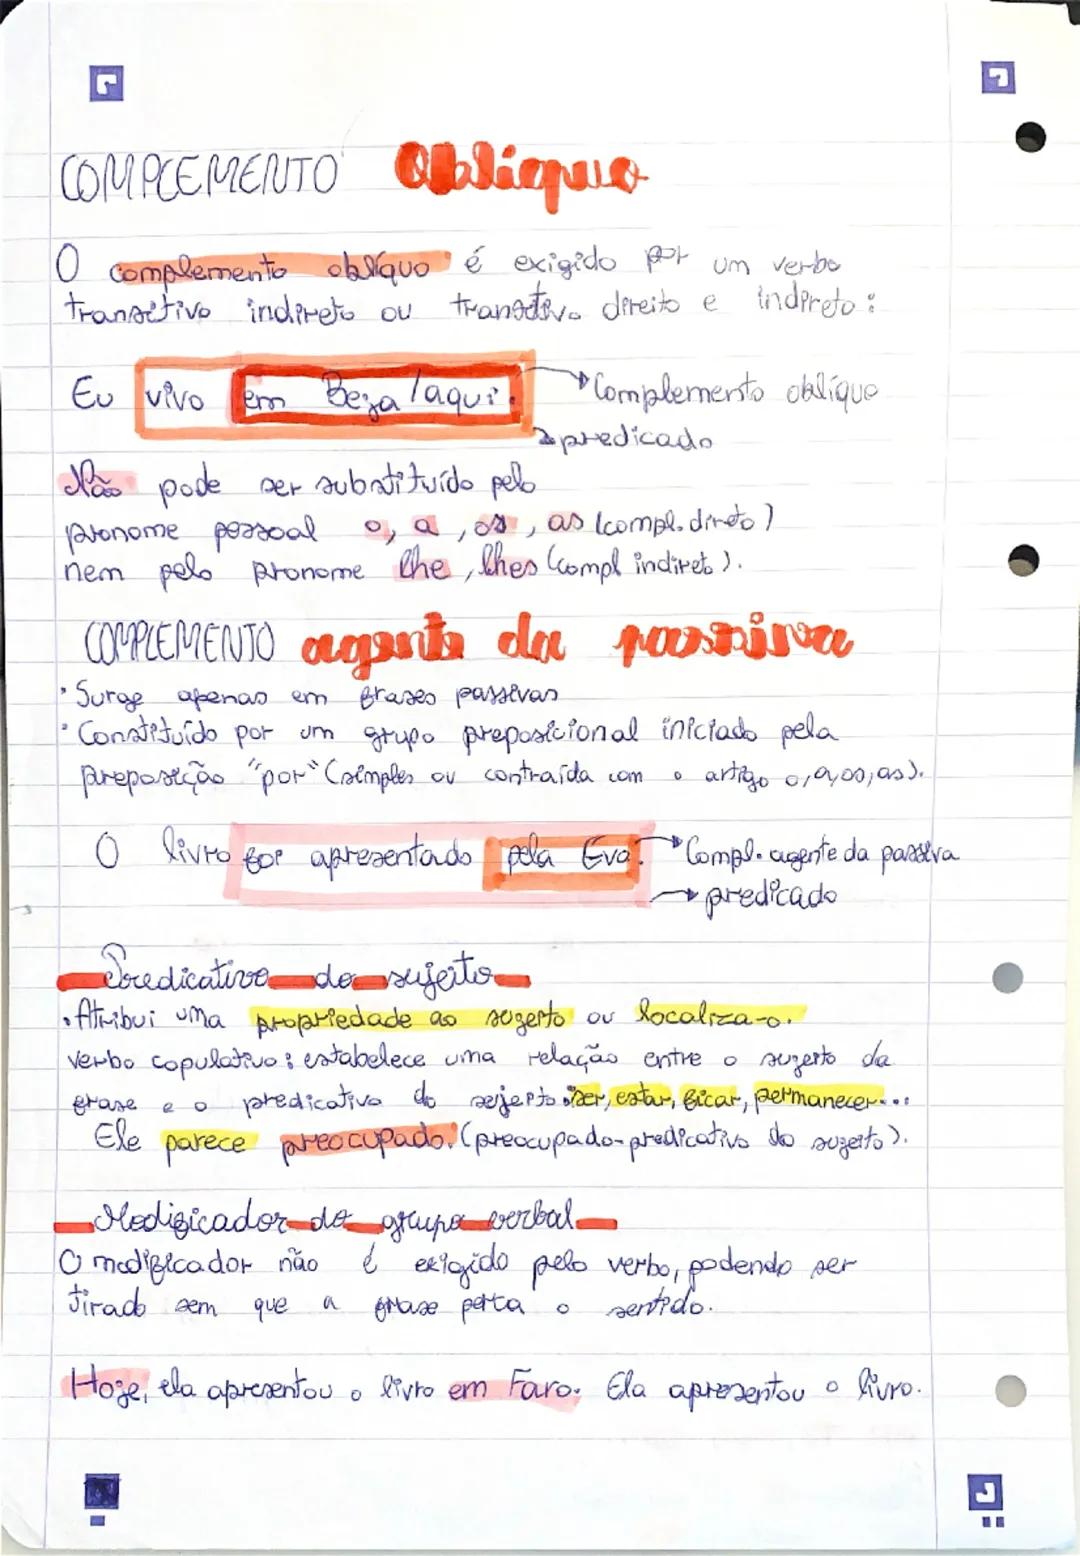 COMPLEMENTO Oblíquo
O complemento oblíquo é exigido por um verbo
transitivo indireto ou transitivo direito e indireto:
Eu vivo em Beja/aqui. Complemento oblíquo
predicado
Não pode ser substituído pelo
pronome pessoal o, a, os, as (compl. direto)
nem pelo pronome lhe, lhes (compl indireto).
COMPLEMENTO agente da passiva
· Surge apenas em frases passivas
· Constituído por um grupo preposicional iniciado pela
preposição "por" (simples ou contraída com o artigo o, a, os, as).
O livro foi apresentado pela Eva. Compl. agente da passiva
predicado
Predicativo do sujeito
· Atribui uma propriedade ao sujeito ou localiza-o.
Verbo copulativo: estabelece uma relação entre o sujeito da
frase e o predicativo do sejeito: ser, estar, ficar, permanecer...
Ele parece preocupado. (preocupado-predicativo do sujeito).
Modificador do grupo verbal
O modificador não é exigido pelo verbo, podendo ser
tirado sem que a frase perca o sentido.
Hoje, ela apresentou o livro em Faro. Ela apresentou o livro.